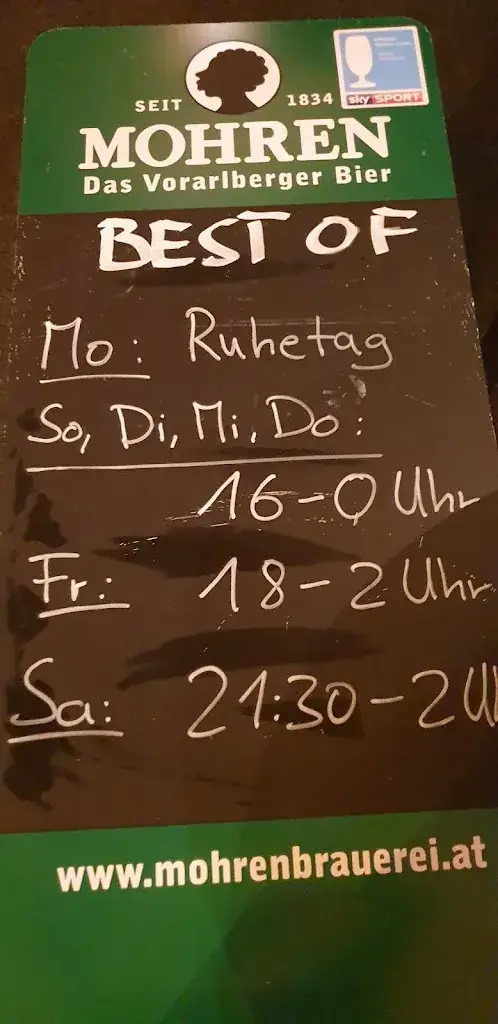 SEIT 1834
sky SPORT
MOHREN
Das Vorarlberger Bier
BEST OF
Mo: Ruhetag
So, Di, Mi, Do:
16-0 Uhr
Fr: 18-2 Uhr
Sa: 21:30-2 U
www.mohrenbrauerei.at